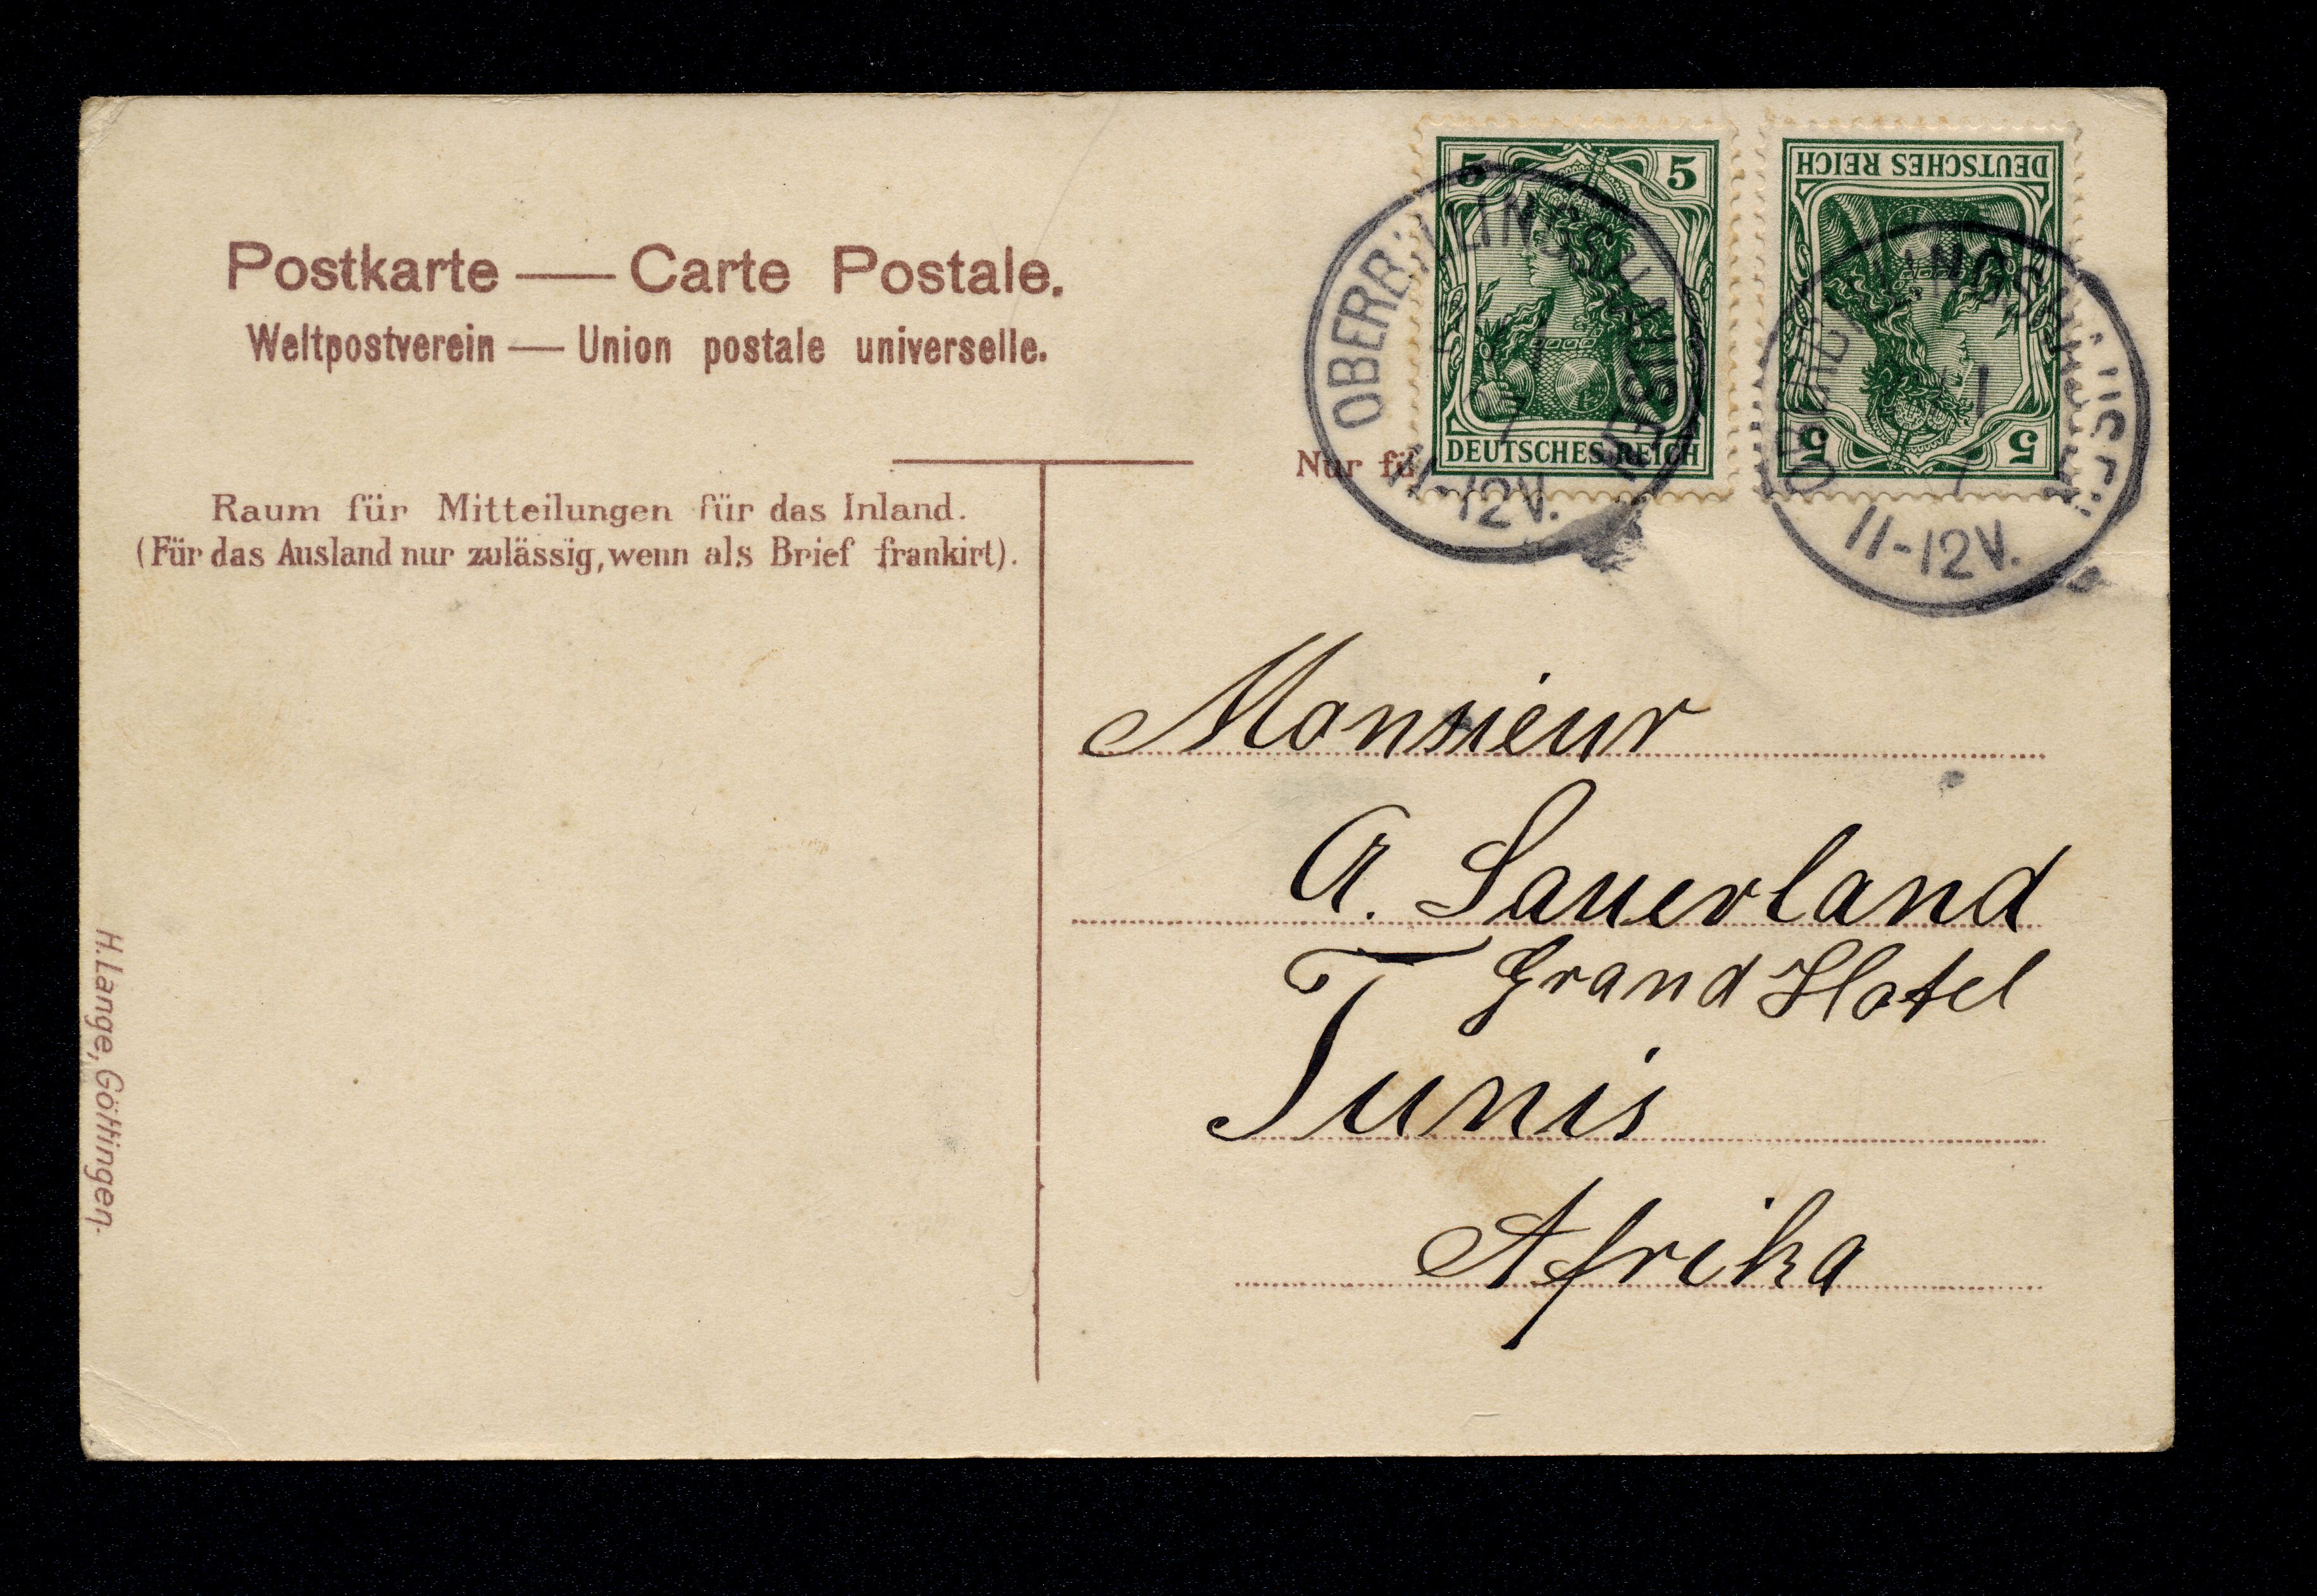 Postkarte — Carte Postale.
Weltpostverein — Union postale universelle.
Raum für Mitteilungen für das Inland.
(Für das Ausland nur zulässig, wenn als Brief frankirt).
H. Lange, Göttingen.
5 5
DEUTSCHES REICH
DEUTSCHES REICH
5 5
11-12V.
11-12V.
Nur
Monsieur
A. Sauerland
Grand Hotel
Tunis
Afrika